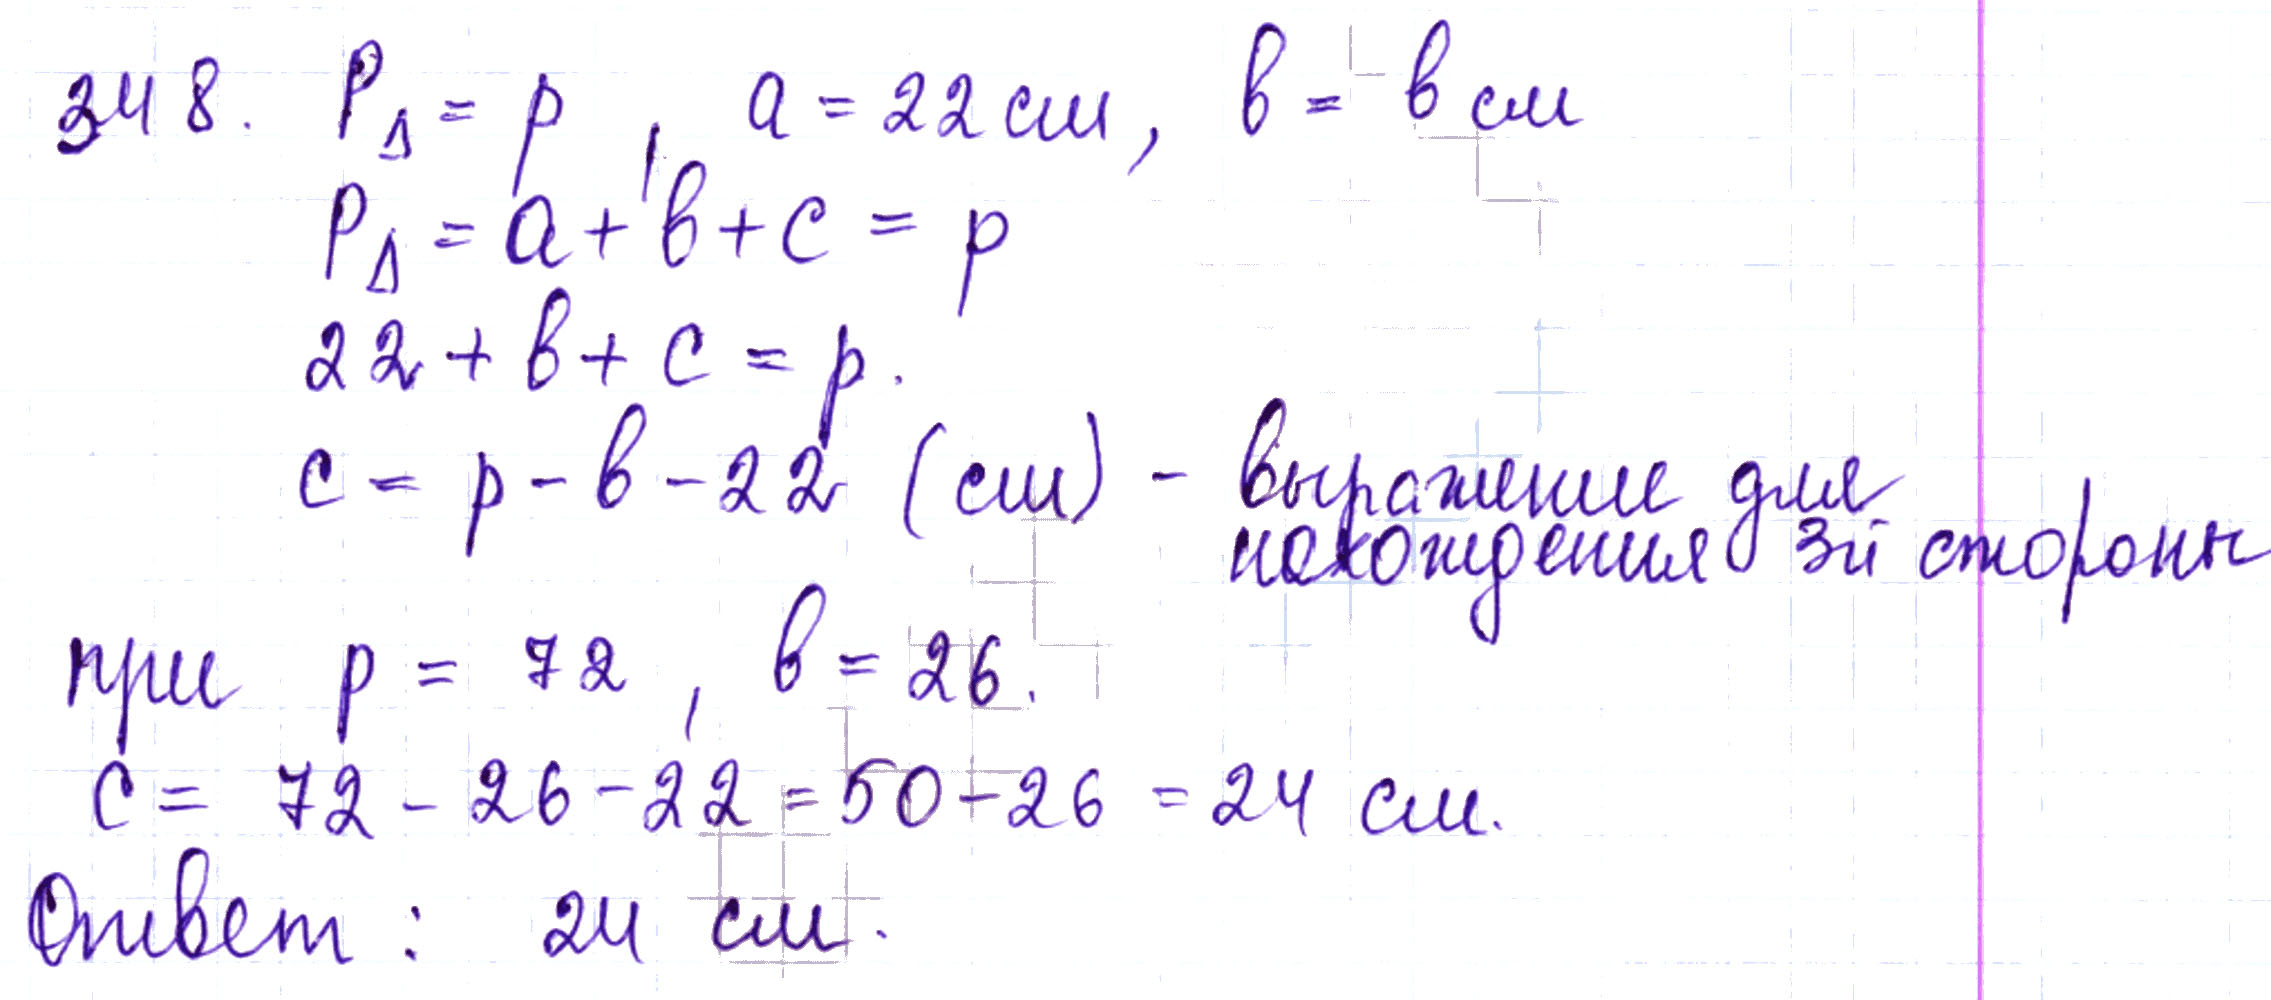 348. P△ = p, a = 22 см, в = в см
P△ = a + в + c = p
22 + в + c = p.
c = p - в - 22 (см) - выражение для
нахождения 3й стороны
при p = 72, в = 26.
c = 72 - 26 - 22 = 50 - 26 = 24 см.
Ответ: 24 см.